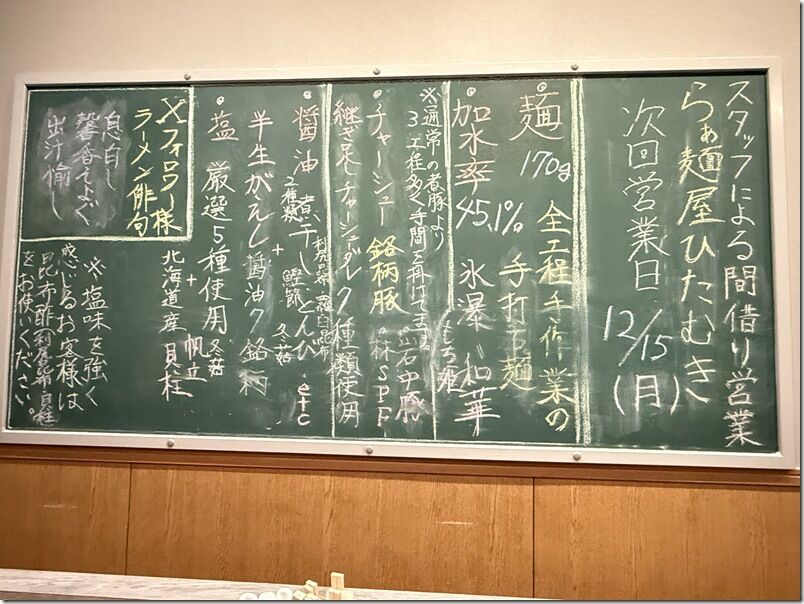 スタッフによる間借り営業
らぁ麺屋ひたむき
次回営業日 12/15(月)
麺 170g 全工程手作業の
手打ち麺
加水率 45.1% 氷瀑
もち姫
和華
※通常の煮豚より
3工程多く手間を掛けてます。
チャーシュー 銘柄豚
岩中豚
林SPF
継ぎ足しチャーシューダレ7種類使用
醤油 煮干し
2種類
鰹節
利尻昆布 羅臼昆布
とんび
冬菇
etc
+
半生がえし 醤油7銘柄
塩 厳選5種使用
冬菇
+
北海道産 帆立貝柱
Xフォロワー様
ラーメン俳句
息白し
馨香てふてふ
出汁愉し
※塩味を強く
感じるお客様は
昆布酢(利尻昆布 貝柱)
をお使いください。